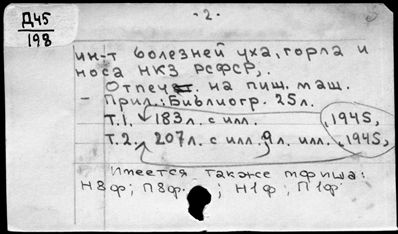 Д45
198
- 2 -
ин-т болезней уха, горла и
носа НКЗ РСФСР,.
Отпеч. на пиш. маш.
- Прил.: Библиогр. 25л.
Т.1. 183л. с илл. ,1945,
Т.2. 207л. с илл. 9л. илл. ,1945,
Имеется также мфиша:
Н8ф; П8ф. ; Н1ф; П1ф